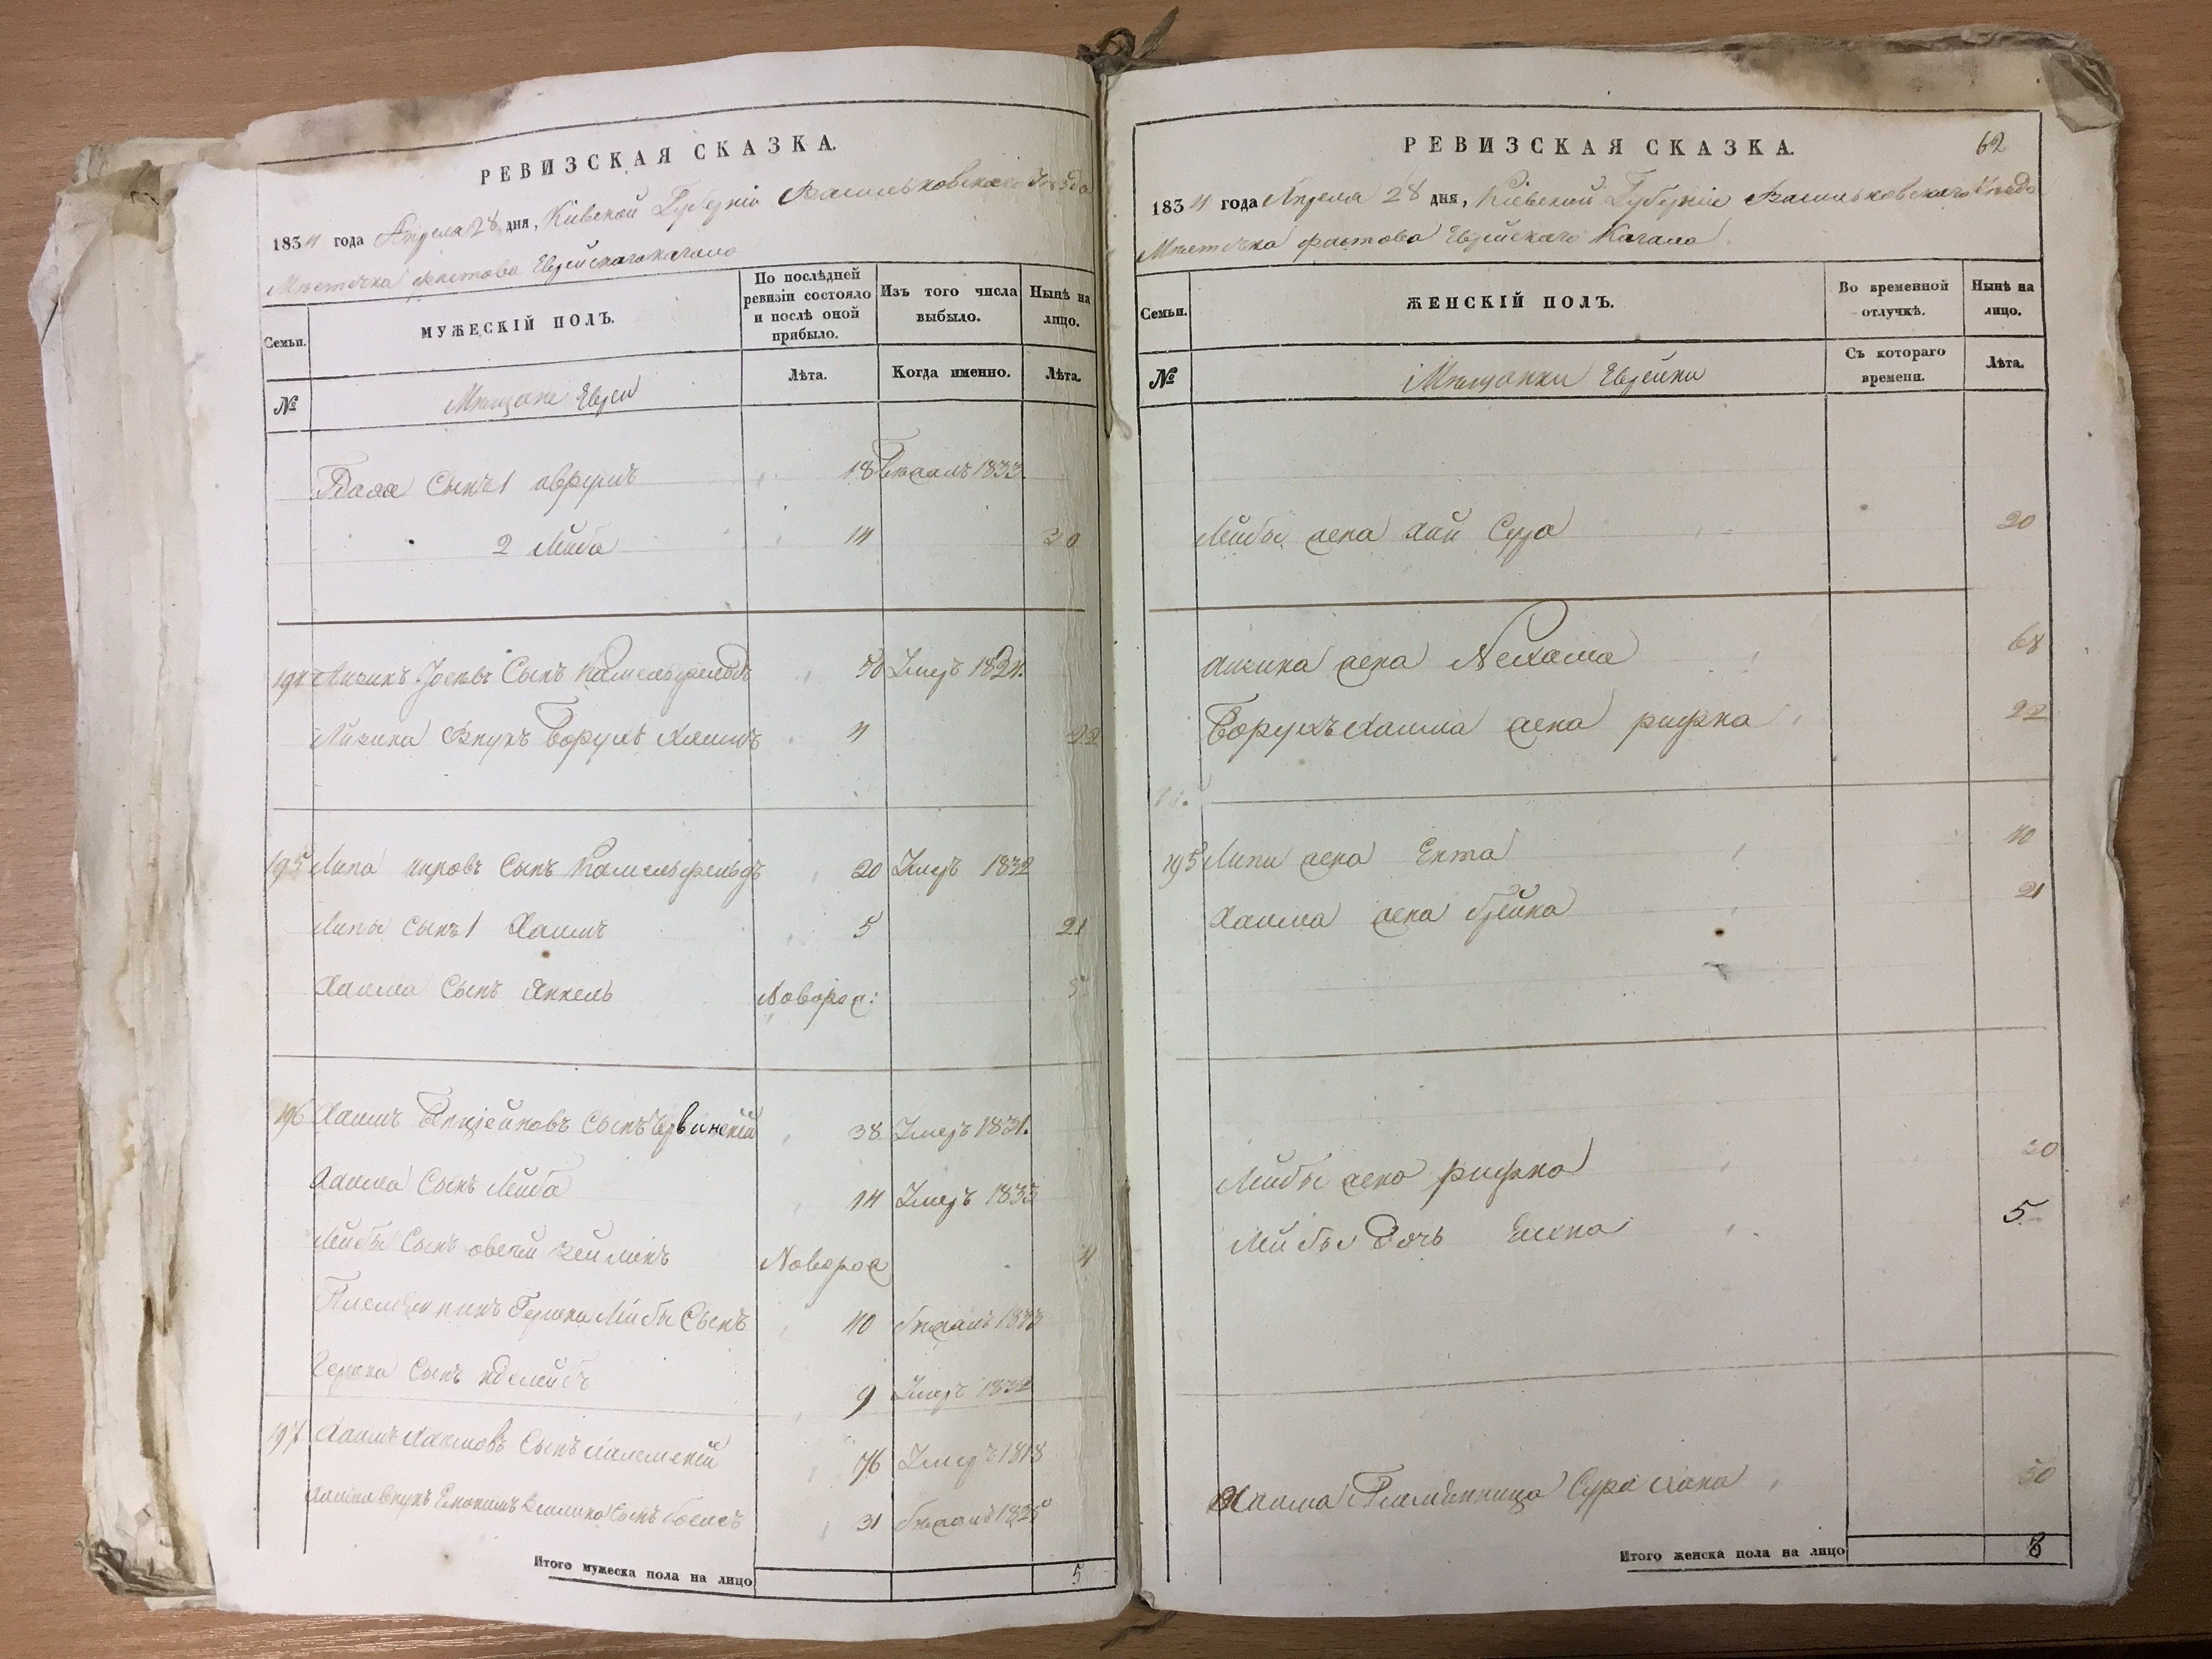 РЕВИЗСКАЯ СКАЗКА.
1834 года Апреля 28 дня, Кіевской Губерніи Васильковскаго Уезда
Местечка Фастова Еврейскаго Кагала
Семьи.
МУЖЕСКІЙ ПОЛЪ.
По послѣдней ревизіи состояло и послѣ оной прибыло.
Изъ того числа выбыло.
Нынѣ на лицо.
№
Мещане Евреи
Лѣта.
Когда именно.
Лѣта.
сынъ 1 Аврумъ 18 Бежалъ 1833.
2 Лейба 14 30
194 Айзикъ Іосевъ Сынъ 50 Умеръ 1824.
Айзика Внукъ Борухъ Хаимъ 4 22
195 Липа Сынъ 20 Умеръ 1832
Липы Сынъ 1 Хаимъ 5 21
Хаима Сынъ Янкель Новорож: 5
196 Хаимъ Сынъ Червинскій 38 Умеръ 1831.
Хаима Сынъ Лейба 14 Умеръ 1833
Лейбы Сынъ Овсей Зейликъ Новорож 4
Племянникъ Гершка Лейбы Сынъ 40 бежалъ 1833
Гершка Сынъ 9 Умеръ 1832
197 Хаимъ Хаимовъ Сынъ 76 Умеръ 1818
Хаима Внукъ Сынъ 31 бежалъ 1825
Итого мужеска пола на лицо 5
62
РЕВИЗСКАЯ СКАЗКА.
1834 года Апреля 28 дня, Кіевской Губерніи Васильковскаго Уезда
Местечка Фастова Еврейскаго Кагала
Семьи.
ЖЕНСКІЙ ПОЛЪ.
Во временной отлучкѣ.
Нынѣ на лицо.
№
Мещанки Еврейки
Съ котораго времени.
Лѣта.
Лейбы жена Хай Сура 20
Айзика жена Нехама 68
Борухъ Хаима жена рифка 22
195 Липи жена Ента 40
Хаима жена брейна 21
Лейбы жена рифка 30
Лейбы Дочь Елена 5
Хаима Племянница Сура Хана 50
Итого женска пола на лицо 8